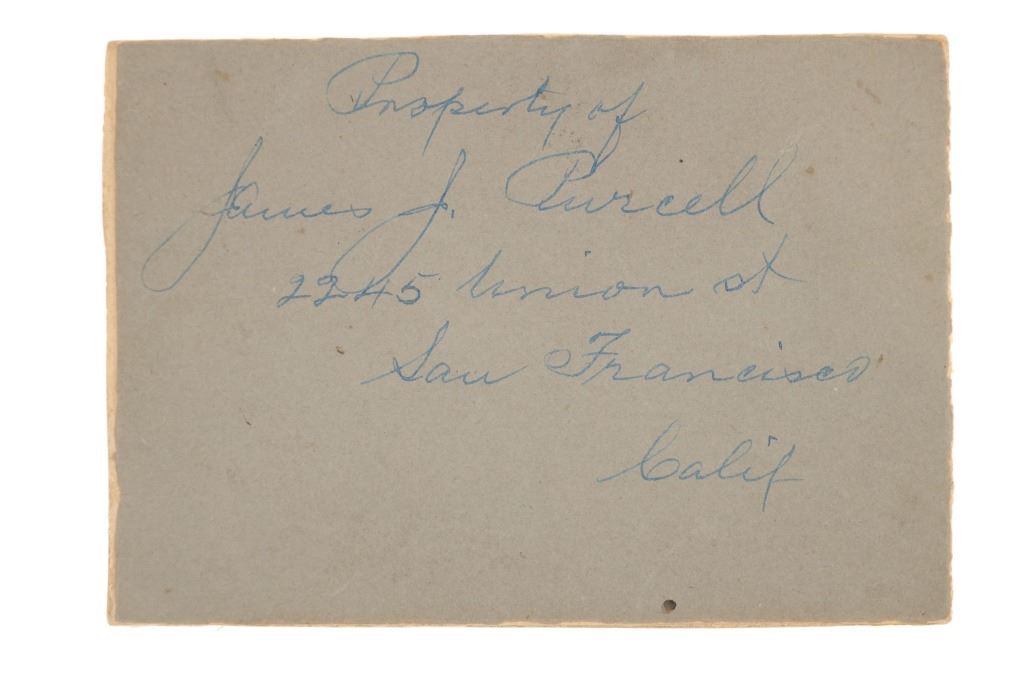 Property of
James J. Purcell
2245 Union st
San Francisco
Calif